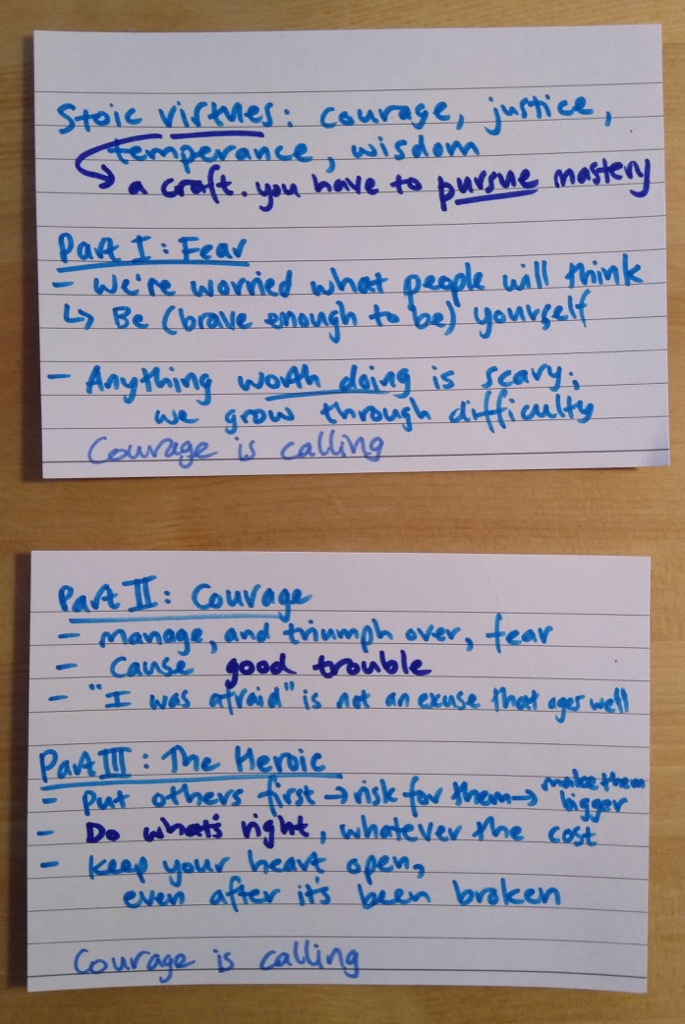 Stoic virtues: courage, justice,
temperance, wisdom
↳ a craft. you have to pursue mastery
Part I: Fear
- we're worried what people will think
↳ Be (brave enough to be) yourself
- Anything worth doing is scary;
we grow through difficulty
Courage is calling
Part II: Courage
- manage, and triumph over, fear
- cause good trouble
- "I was afraid" is not an excuse that ages well
Part III: The Heroic
- put others first → risk for them → make them bigger
- Do what's right, whatever the cost
- keep your heart open,
even after it's been broken
Courage is calling